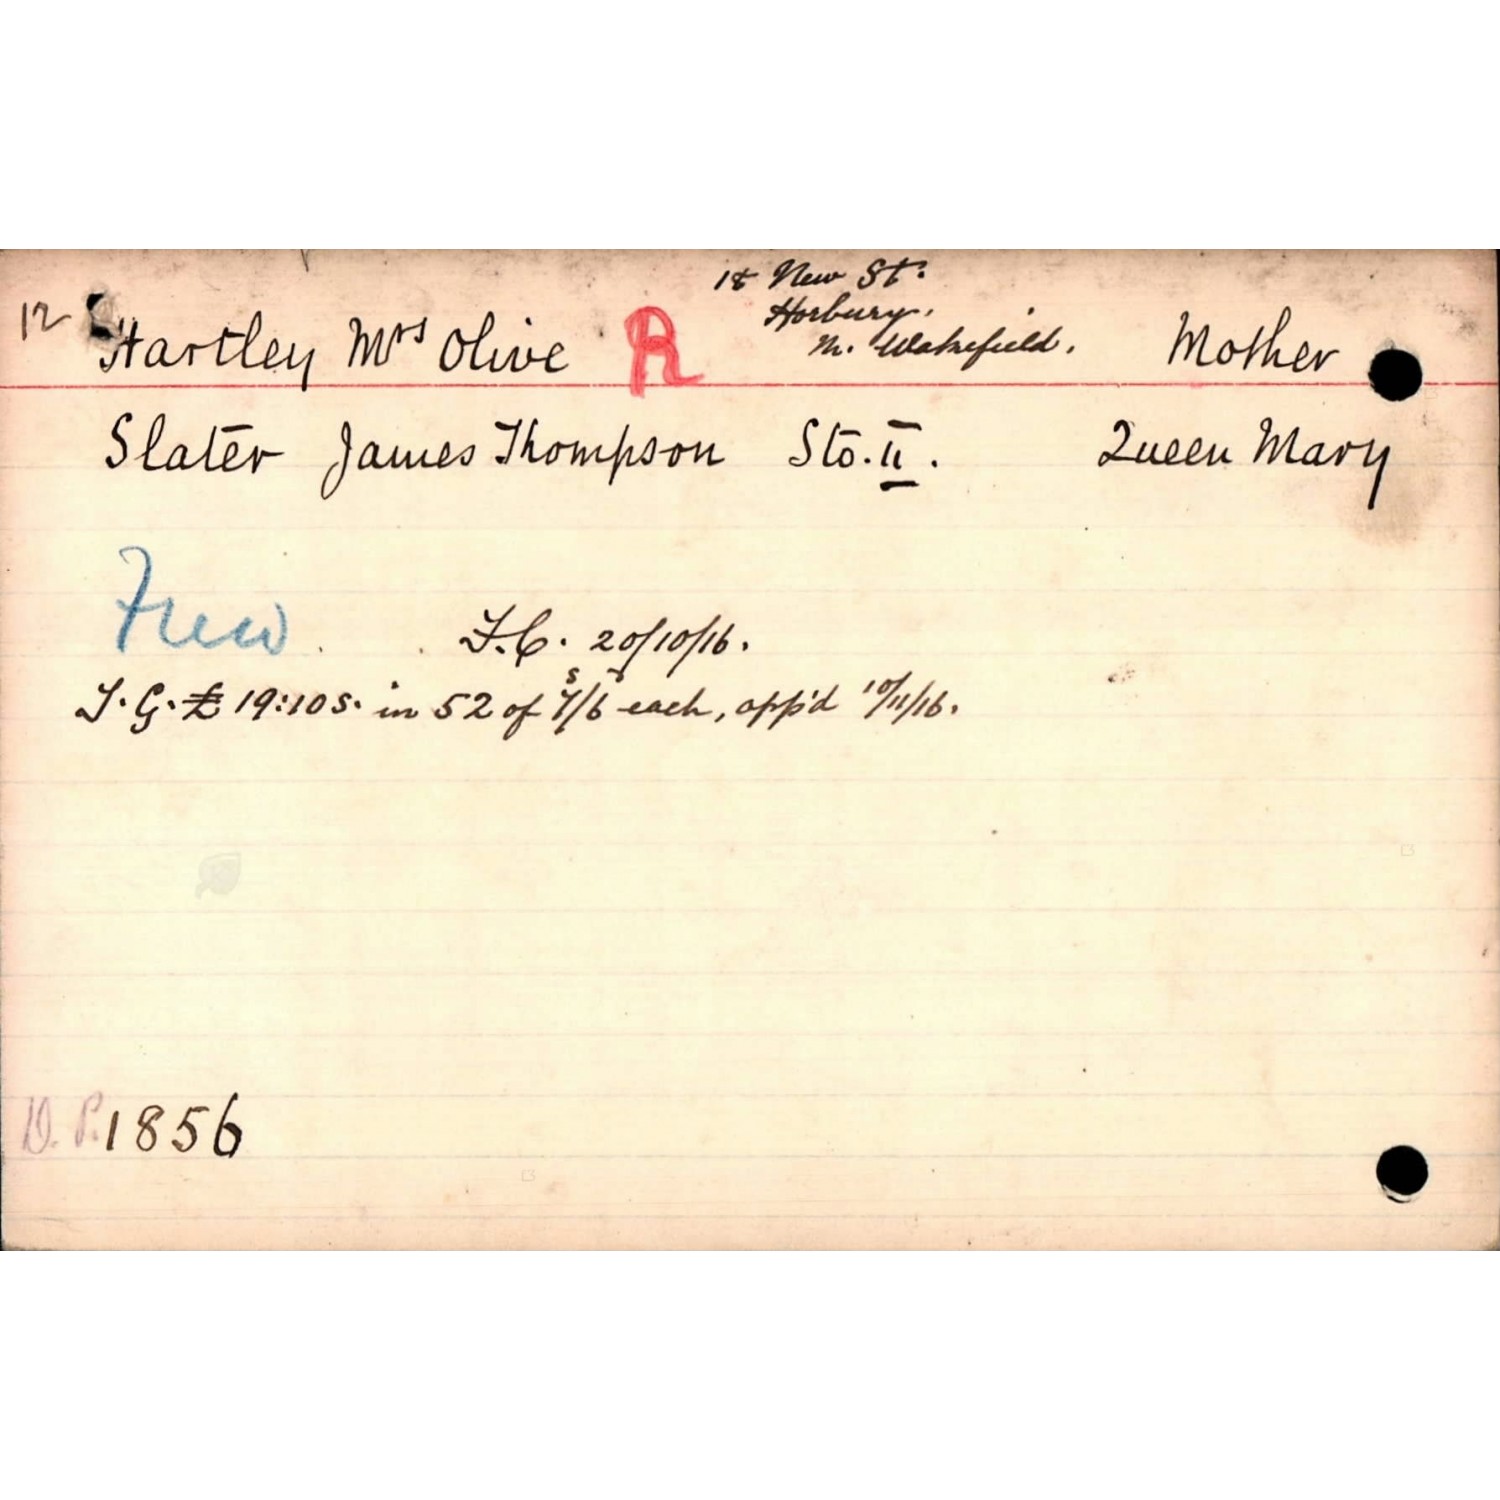 18 New St.
Horbury.
Nr. Wakefield.
12 Hartley Mrs Olive R Mother
Slater James Thompson Sto. II. Queen Mary
F.C. 20/10/16.
I.G. £19:10s. in 52 of 7s/6d each, app'd 10/11/16.
D.P. 1856